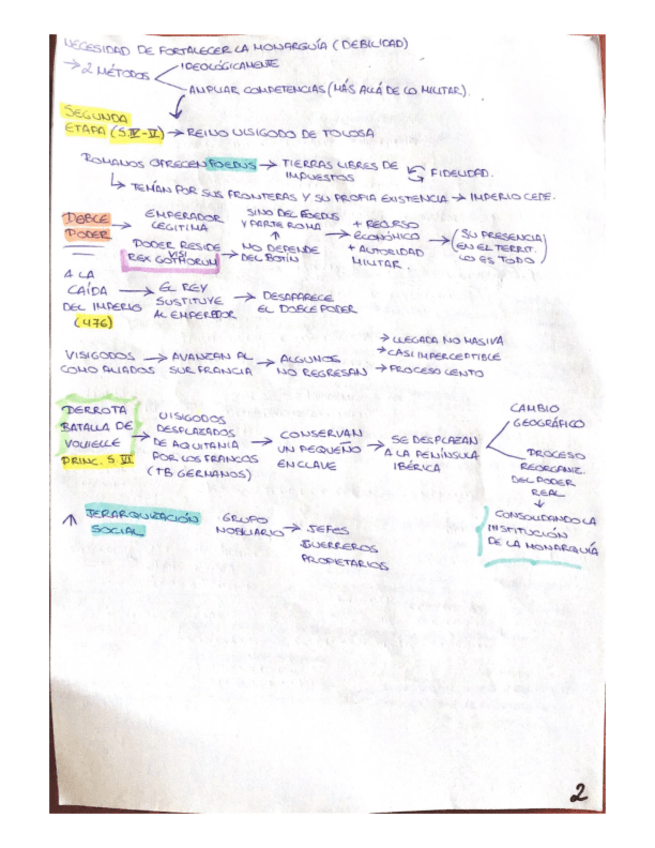 NECESIDAD DE FORTALECER LA MONARQUÍA (DEBILIDAD)
→ 2 MÉTODOS
IDEOLÓGICAMENTE
AMPLIAR COMPETENCIAS (MÁS ALLÁ DE LO MILITAR).
SEGUNDA
ETAPA (S IV-V) → REINO VISIGODO DE TOLOSA
ROMANOS OFRECEN FOEDUS → TIERRAS LIBRES DE
IMPUESTOS
FIDELIDAD.
↳ TEMÍAN POR SUS FRONTERAS Y SU PROPIA EXISTENCIA → IMPERIO CEDE.
DOBLE
PODER
→ EMPERADOR
LEGITIMA
PODER RESIDE
VISI
REX GOTHORUM
SINO DEL FOEDUS
Y PARTE ROMA
↑
→ NO DEPENDE
DEL BOTÍN
→ + RECURSO
ECONÓMICO
+ AUTORIDAD
MILITAR.
→ (SU PRESENCIA
EN EL TERRIT.
LO ES TODO)
A LA
CAÍDA
DEL IMPERIO
(476)
→ EL REY
SUSTITUYE
AL EMPERADOR
→ DESAPARECE
EL DOBLE PODER
VISIGODOS
COMO ALIADOS
→ AVANZAN AL
SUR FRANCIA
→ ALGUNOS
NO REGRESAN
→ LLEGADA NO MASIVA
→ CASI IMPERCEPTIBLE
→ PROCESO LENTO
DERROTA
BATALLA DE
VOUIELLE
PRINC. S VI
→ VISIGODOS
DESPLAZADOS
DE AQUITANIA
POR LOS FRANCOS
(TB GERMANOS)
→ CONSERVAN
UN PEQUEÑO
ENCLAVE
→ SE DESPLAZAN
A LA PENÍNSULA
IBÉRICA
CAMBIO
GEOGRÁFICO
PROCESO
REORGANIZ.
DEL PODER
REAL
↓
CONSOLIDANDO LA
INSTITUCIÓN
DE LA MONARQUÍA
↑ JERARQUIZACIÓN
SOCIAL
GRUPO
NOBILIARIO
→ JEFES
GUERREROS
PROPIETARIOS
2